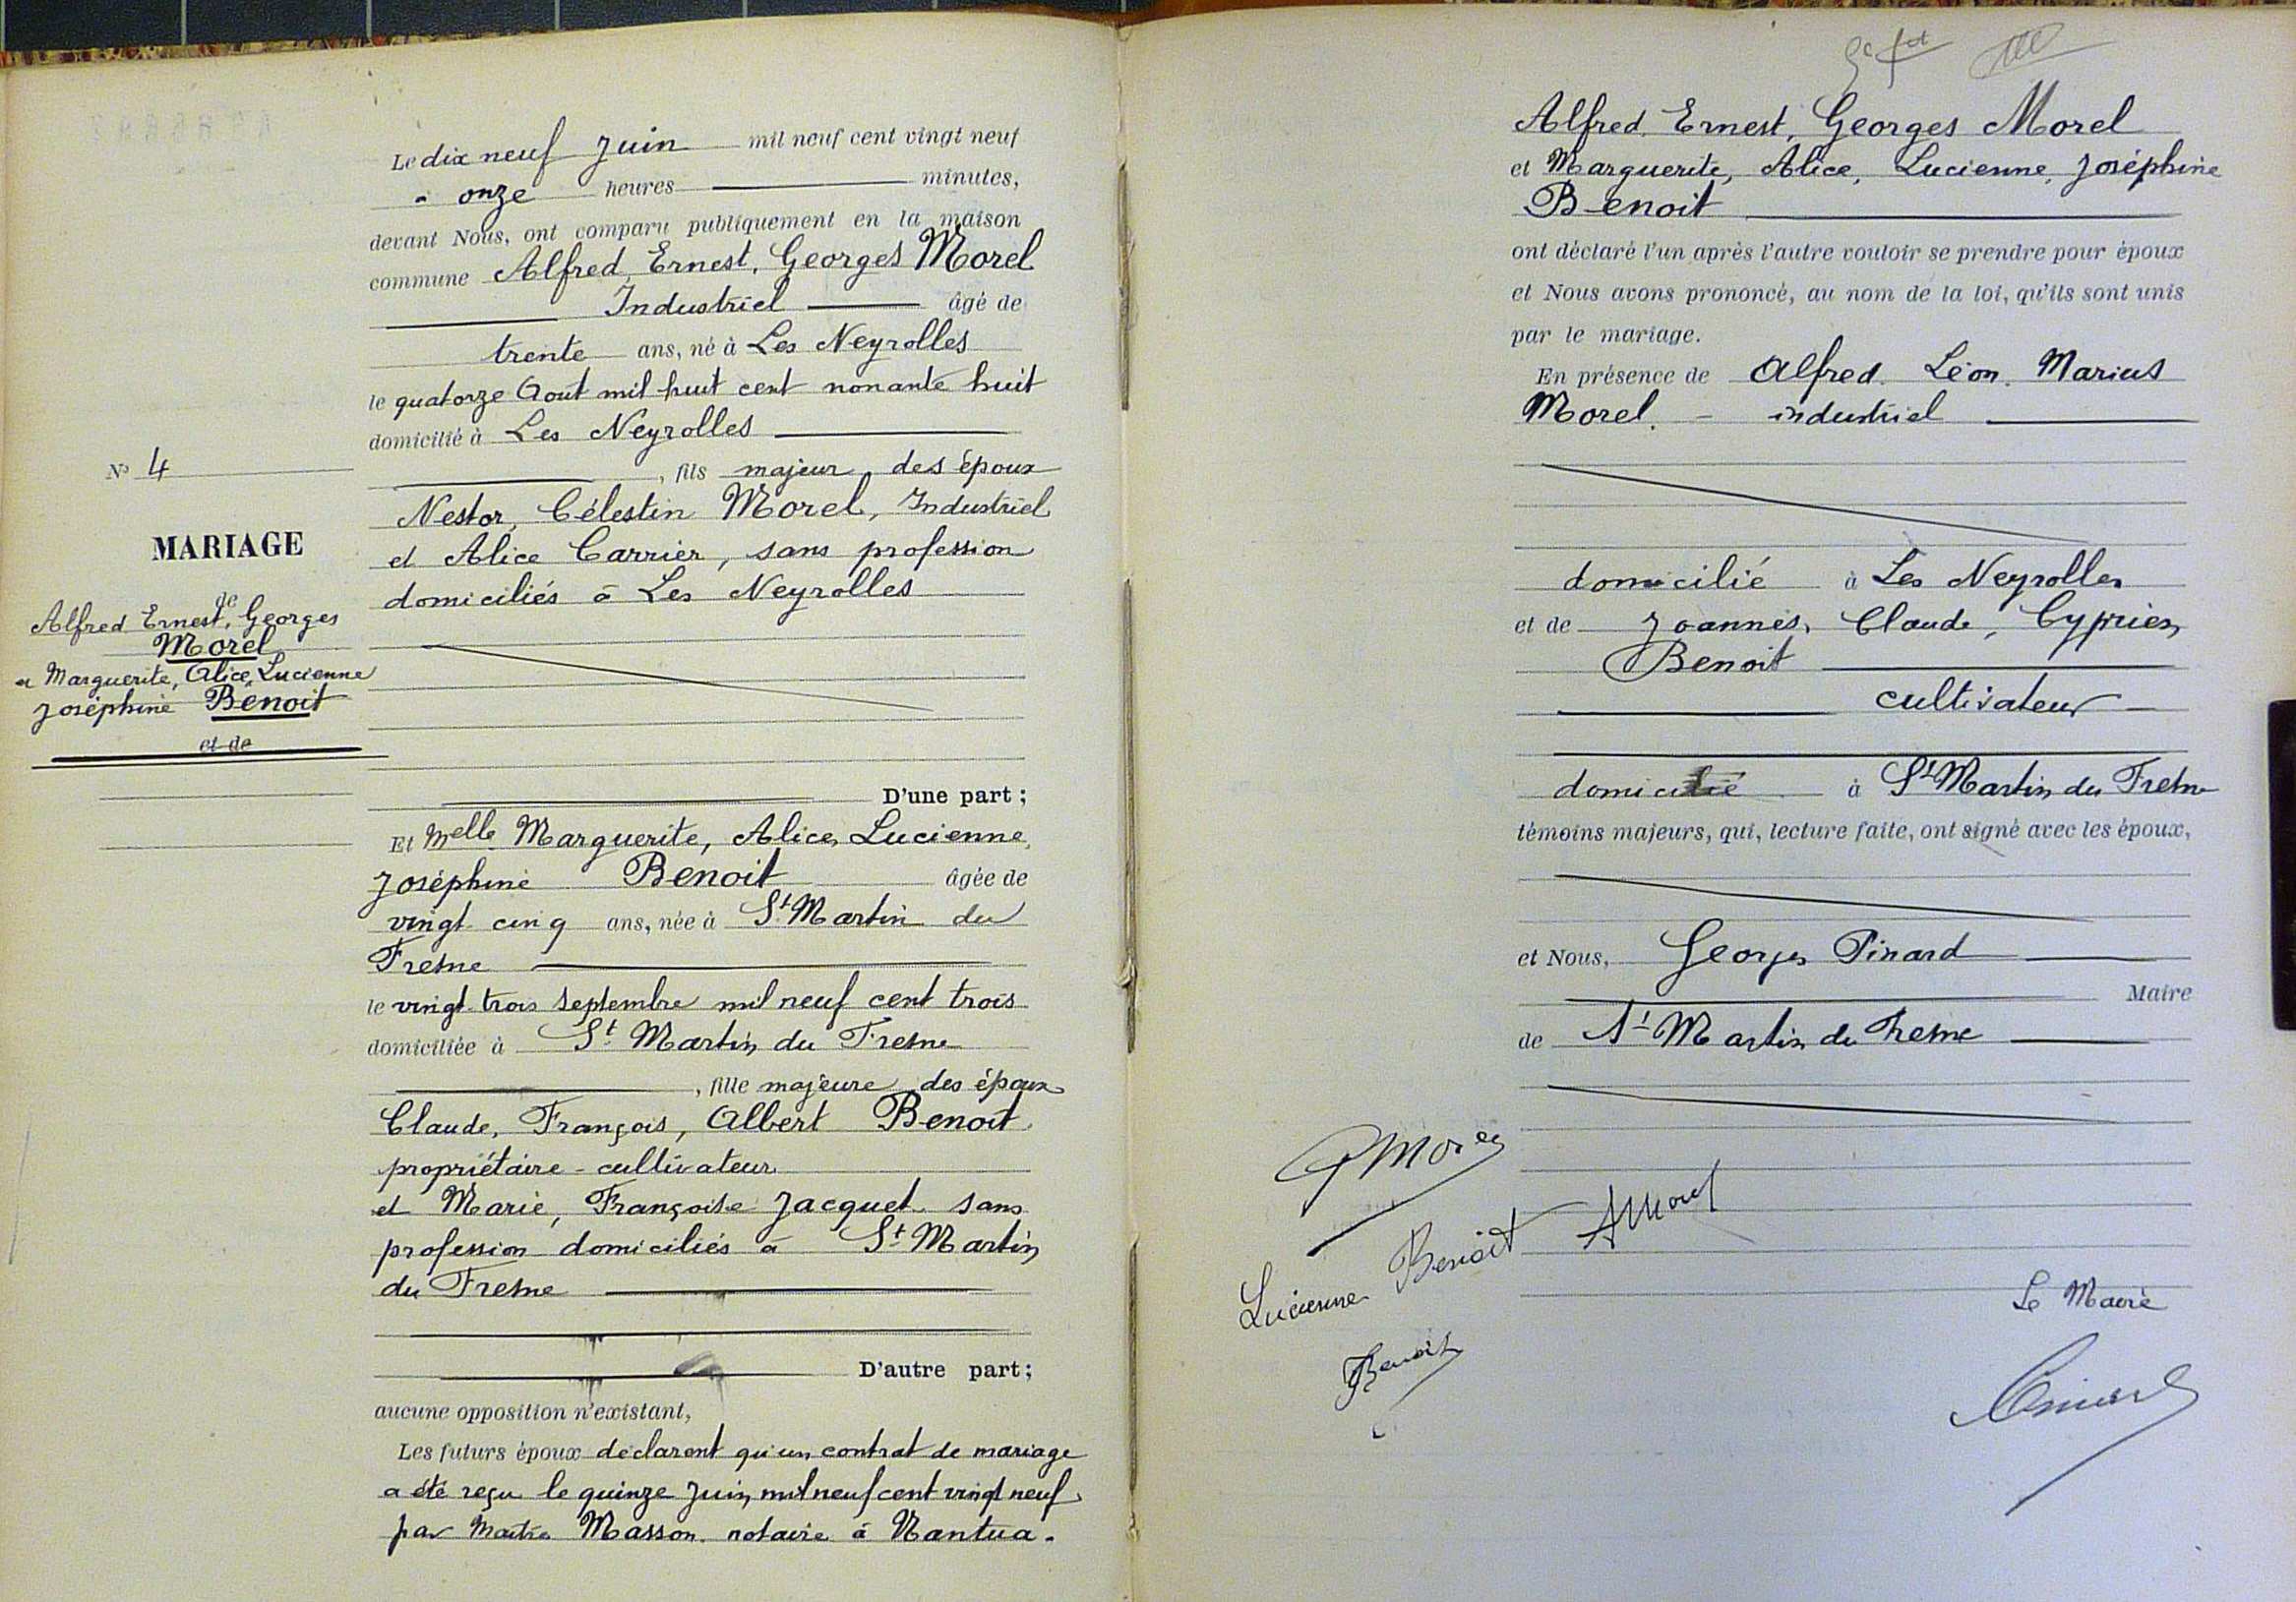 N° 4
MARIAGE
de
Alfred Ernest, Georges
Morel
et Marguerite, Alice, Lucienne
Joséphine Benoit
et de
Le dix neuf Juin mil neuf cent vingt neuf
à onze heures minutes,
devant Nous, ont comparu publiquement en la maison
commune Alfred, Ernest, Georges Morel
Industriel âgé de
trente ans, né à Les Neyrolles
le quatorze Août mil huit cent nonante huit
domicilié à Les Neyrolles
, fils majeur des époux
Nestor, Célestin Morel, Industriel
et Alice Carrier, sans profession
domiciliés à Les Neyrolles
D'une part ;
Et Melle Marguerite, Alice, Lucienne,
Joséphine Benoit âgée de
vingt cinq ans, née à St Martin du
Fresne
le vingt-trois Septembre mil neuf cent trois
domiciliée à St Martin du Fresne
, fille majeure des époux
Claude, François, Albert Benoit
propriétaire-cultivateur
et Marie, Françoise Jacquet sans
profession domiciliés à St Martin
du Fresne
D'autre part ;
aucune opposition n'existant,
Les futurs époux déclarent qu'un contrat de mariage
a été reçu le quinze Juin mil neuf cent vingt neuf
par Maitre Masson. notaire à Nantua.
Alfred, Ernest, Georges Morel
et Marguerite, Alice, Lucienne, Joséphine
Benoit
ont déclaré l'un après l'autre vouloir se prendre pour époux
et Nous avons prononcé, au nom de la loi, qu'ils sont unis
par le mariage.
En présence de Alfred. Léon. Marius
Morel. - industriel
domicilié à Les Neyrolles
et de Joannès, Claude, Cyprien
Benoit
cultivateur
domicilié à St Martin du Fresne
témoins majeurs, qui, lecture faite, ont signé avec les époux,
et Nous, Georges Pinard
Maire
de St Martin du Fresne
GMorel
Lucienne Benoit AMorel
Benoit
Le Maire